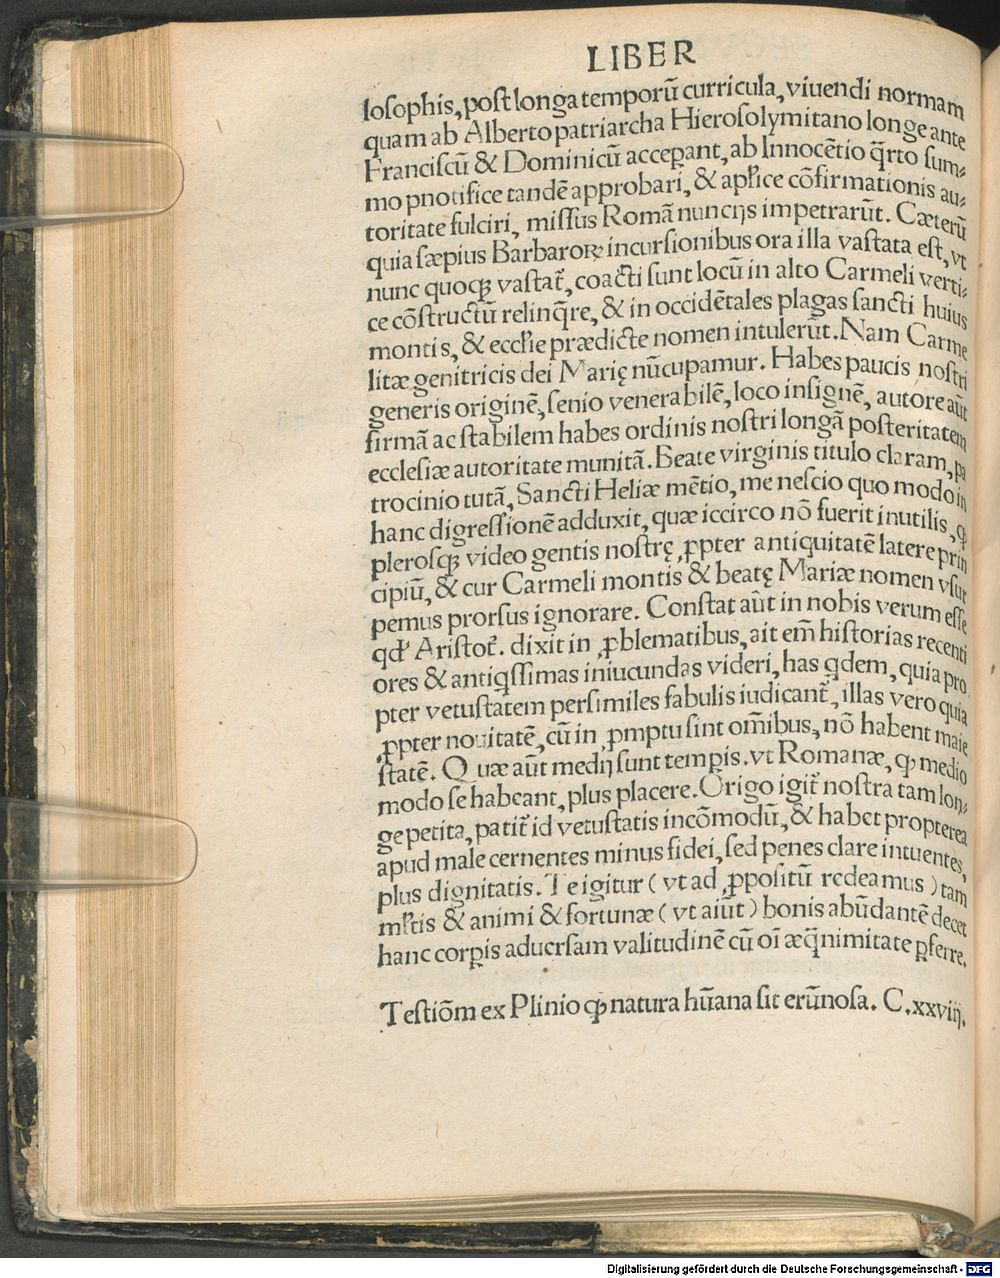 LIBER
losophis, post longa temporū curricula, viuendi normam
quam ab Alberto patriarcha Hierosolymitano longe ante
Franciscū & Dominicū acceꝑant, ab Innocētio q̄rto sum⸗
mo pnotifice tandē approbari, & apl'ice cōfirmationis au⸗
toritate fulciri, missus Romā nuncijs impetrarūt. Cæterū
quia sæpius Barbaroꝝ incursionibus ora illa vastata est, vt
nunc quoqꝫ vastat᷑, coacti sunt locū in alto Carmeli verti⸗
ce cōstructū relinq̄re, & in occidētales plagas sancti huius
montis, & eccl'ie prædicte nomen intulerūt. Nam Carme
litæ genitricis dei Marię nūcupamur. Habes paucis nostri
generis originē, senio venerabilē, loco insignē, autore aūt
firmā ac stabilem habes ordinis nostri longā posteritatem
ecclesiæ autoritate munitā. Beate virginis titulo claram, pa
trocinio tutā, Sancti Heliæ mētio, me nescio quo modo in
hanc digressionē adduxit, quæ iccirco nō fuerit inutilis, ꝙ
plerosqꝫ video gentis nostrę ꝓpter antiquitatē latere prin
cipiū, & cur Carmeli montis & beatę Mariæ nomen vsur
pemus prorsus ignorare. Constat aūt in nobis verum esse
qd' Aristot᷑. dixit in ꝓblematibus, ait em̄ historias recenti
ores & antiqssimas iniucundas videri, has qdem, quia pro
pter vetustatem persimiles fabulis iudicant᷑, illas vero quia
ꝓpter nouitatē, cū in ꝓmptu sint om̄ibus, nō habent maie
statē. Quæ aūt medij sunt temꝑis. vt Romanæ, ꝙ medio
modo se habeant, plus placere. Origo igit᷑ nostra tam lon⸗
ge petita, patit᷑ id vetustatis incōmodū, & habet propterea
apud male cernentes minus fidei, sed penes clare intuentes,
plus dignitatis. Te igitur (vt ad ꝓpositū redeamus) tam
ml'tis & animi & fortunæ (vt aiūt) bonis abūdantē decet
hanc corꝑis aduersam valitudinē cū oī æq̄nimitate ꝑferre.
Testiōm ex Plinio ꝙ natura hūana sit erūnosa. C.xxviij.
Digitalisierung gefördert durch die Deutsche Forschungsgemeinschaft - DFG